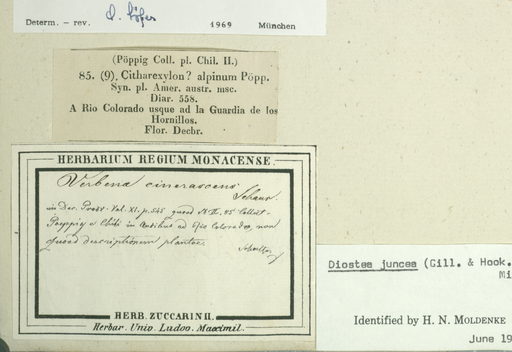 Determ. – rev. 1969 München
(Pöppig Coll. pl. Chil. II.)
85. (9). Citharexylon? alpinum Pöpp.
Syn. pl. Amer. austr. msc.
Diar. 558.
A Rio Colorado usque ad la Guardia de los
Hornillos.
Flor. Decbr.
HERBARIUM REGIUM MONACENSE.
Verbena cinerascens Schauer
in Dec. Prodr. Vol. XI. p. 545 quoad N. 85 Collect.
Poeppig e Chili in Andibus ad Rio Colorado, non
quoad descriptionem plantae.
HERB. ZUCCARINII.
Herbar. Univ. Ludov. Maximil.
Diostea juncea (Gill. & Hook.
Mi
Identified by H. N. MOLDENKE
June 19